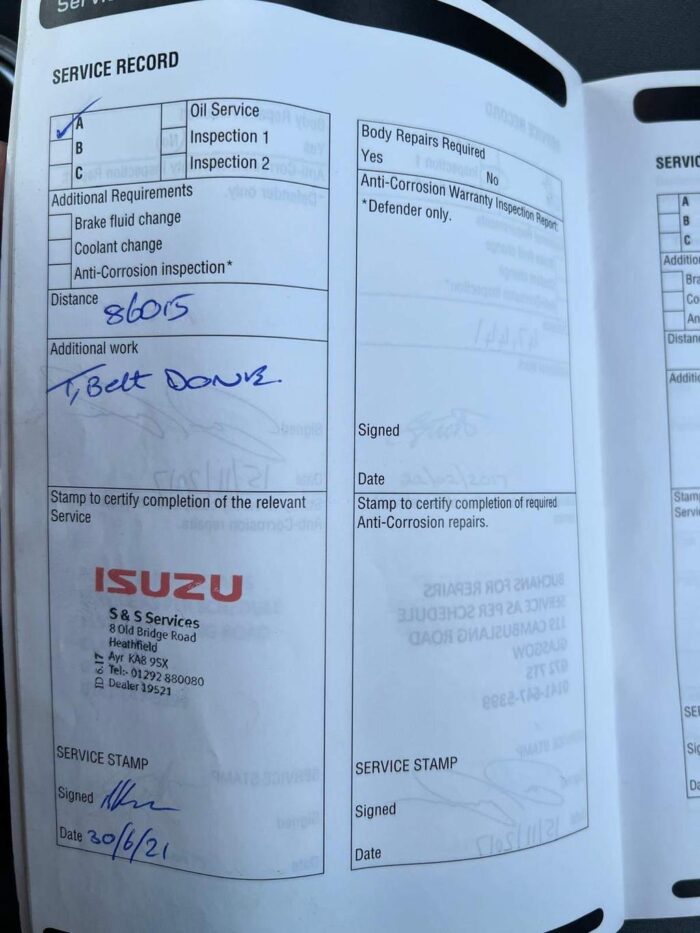 SERVICE RECORD
A
Oil Service
B
Inspection 1
C
Inspection 2
Additional Requirements
Brake fluid change
Coolant change
Anti-Corrosion inspection*
Distance
86015
Additional work
T, Belt DONE.
Stamp to certify completion of the relevant
Service
ISUZU
S & S Services
8 Old Bridge Road
Heathfield
Ayr KA8 9SX
Tel:- 01292 880080
Dealer 19521
ID 6.17
SERVICE STAMP
Signed
Date 30/6/21
Body Repairs Required
Yes
No
Anti-Corrosion Warranty Inspection Report
*Defender only.
Signed
Date
Stamp to certify completion of required
Anti-Corrosion repairs.
BUCHANS FOR REPAIRS
SERVICE AS PER SCHEDULE
119 CAMBUSLANG ROAD
GLASGOW
G72 7TS
0141-647-5399
SERVICE STAMP
Signed
Date
15/11/2017
SERVIC
A
B
C
Additio
Bra
Co
An
Distan
Additi
Stam
Servi
SE
Sig
Da